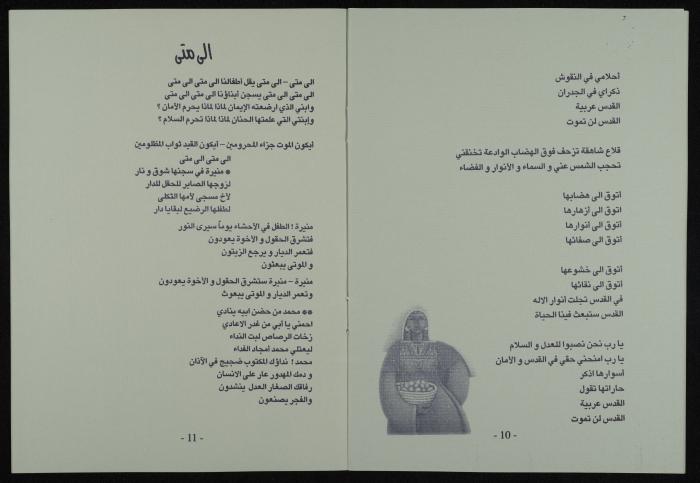 أحلامي في النقوش
ذكراي في الجدران
القدس عربية
القدس لن تموت
قلاع شاهقة تزحف فوق الهضاب الوادعة تخنقني
تحجب الشمس عني و السماء و الأنوار و الفضاء
أتوق الى هضابها
أتوق الى أزهارها
أتوق الى أنوارها
أتوق الى صفائها
أتوق الى خشوعها
أتوق الى نقائها
في القدس تجلت أنوار الاله
القدس ستبعث فينا الحياة
يا رب نحن نصبوا للعدل و السلام
يا رب امنحني حقي في القدس و الأمان
أسوارها اذكر
حاراتها تقول
القدس عربية
القدس لن تموت
- 10 -
الى متى
الى متى – الى متى يقل أطفالنا الى متى الى متى
الى متى الى متى يسجن أبناؤنا الى متى الى متى
وابني الذي أرضعته الإيمان لماذا لماذا يحرم الأمان ؟
وإبنتي التي علمتها الحنان لماذا لماذا تحرم السلام ؟
أيكون الموت جزاء المحرومين – أيكون القيد ثواب المظلومين
الى متى الى متى
* منيرة في سجنها شوق و نار
لزوجها الصابر للحقل للدار
لأخ مسجى لأمها الثكلى
لطفلها الرضيع لبقايا دار
منيرة ! الطفل في الأحشاء يوماً سيرى النور
فتشرق الحقول و الأخوة يعودون
فتعمر الديار و يرجع الزيتون
و الموتى يبعثون
منيرة – منيرة ستشرق الحقول و الأخوة يعودون
وتعمر الديار و الموتى يبعوث
** محمد من حضن ابيه ينادي
احمني يا أبي من غدر الاعادي
زخات الرصاص لبت النداء
ليعتلي محمد أمجاد الفداء
محمد ! نداؤك المكتوب ضجيج في الآذان
و دمك المهدور عار على الانسان
رفاقك الصغار العدل ينشدون
والفجر يصنعون
- 11 -